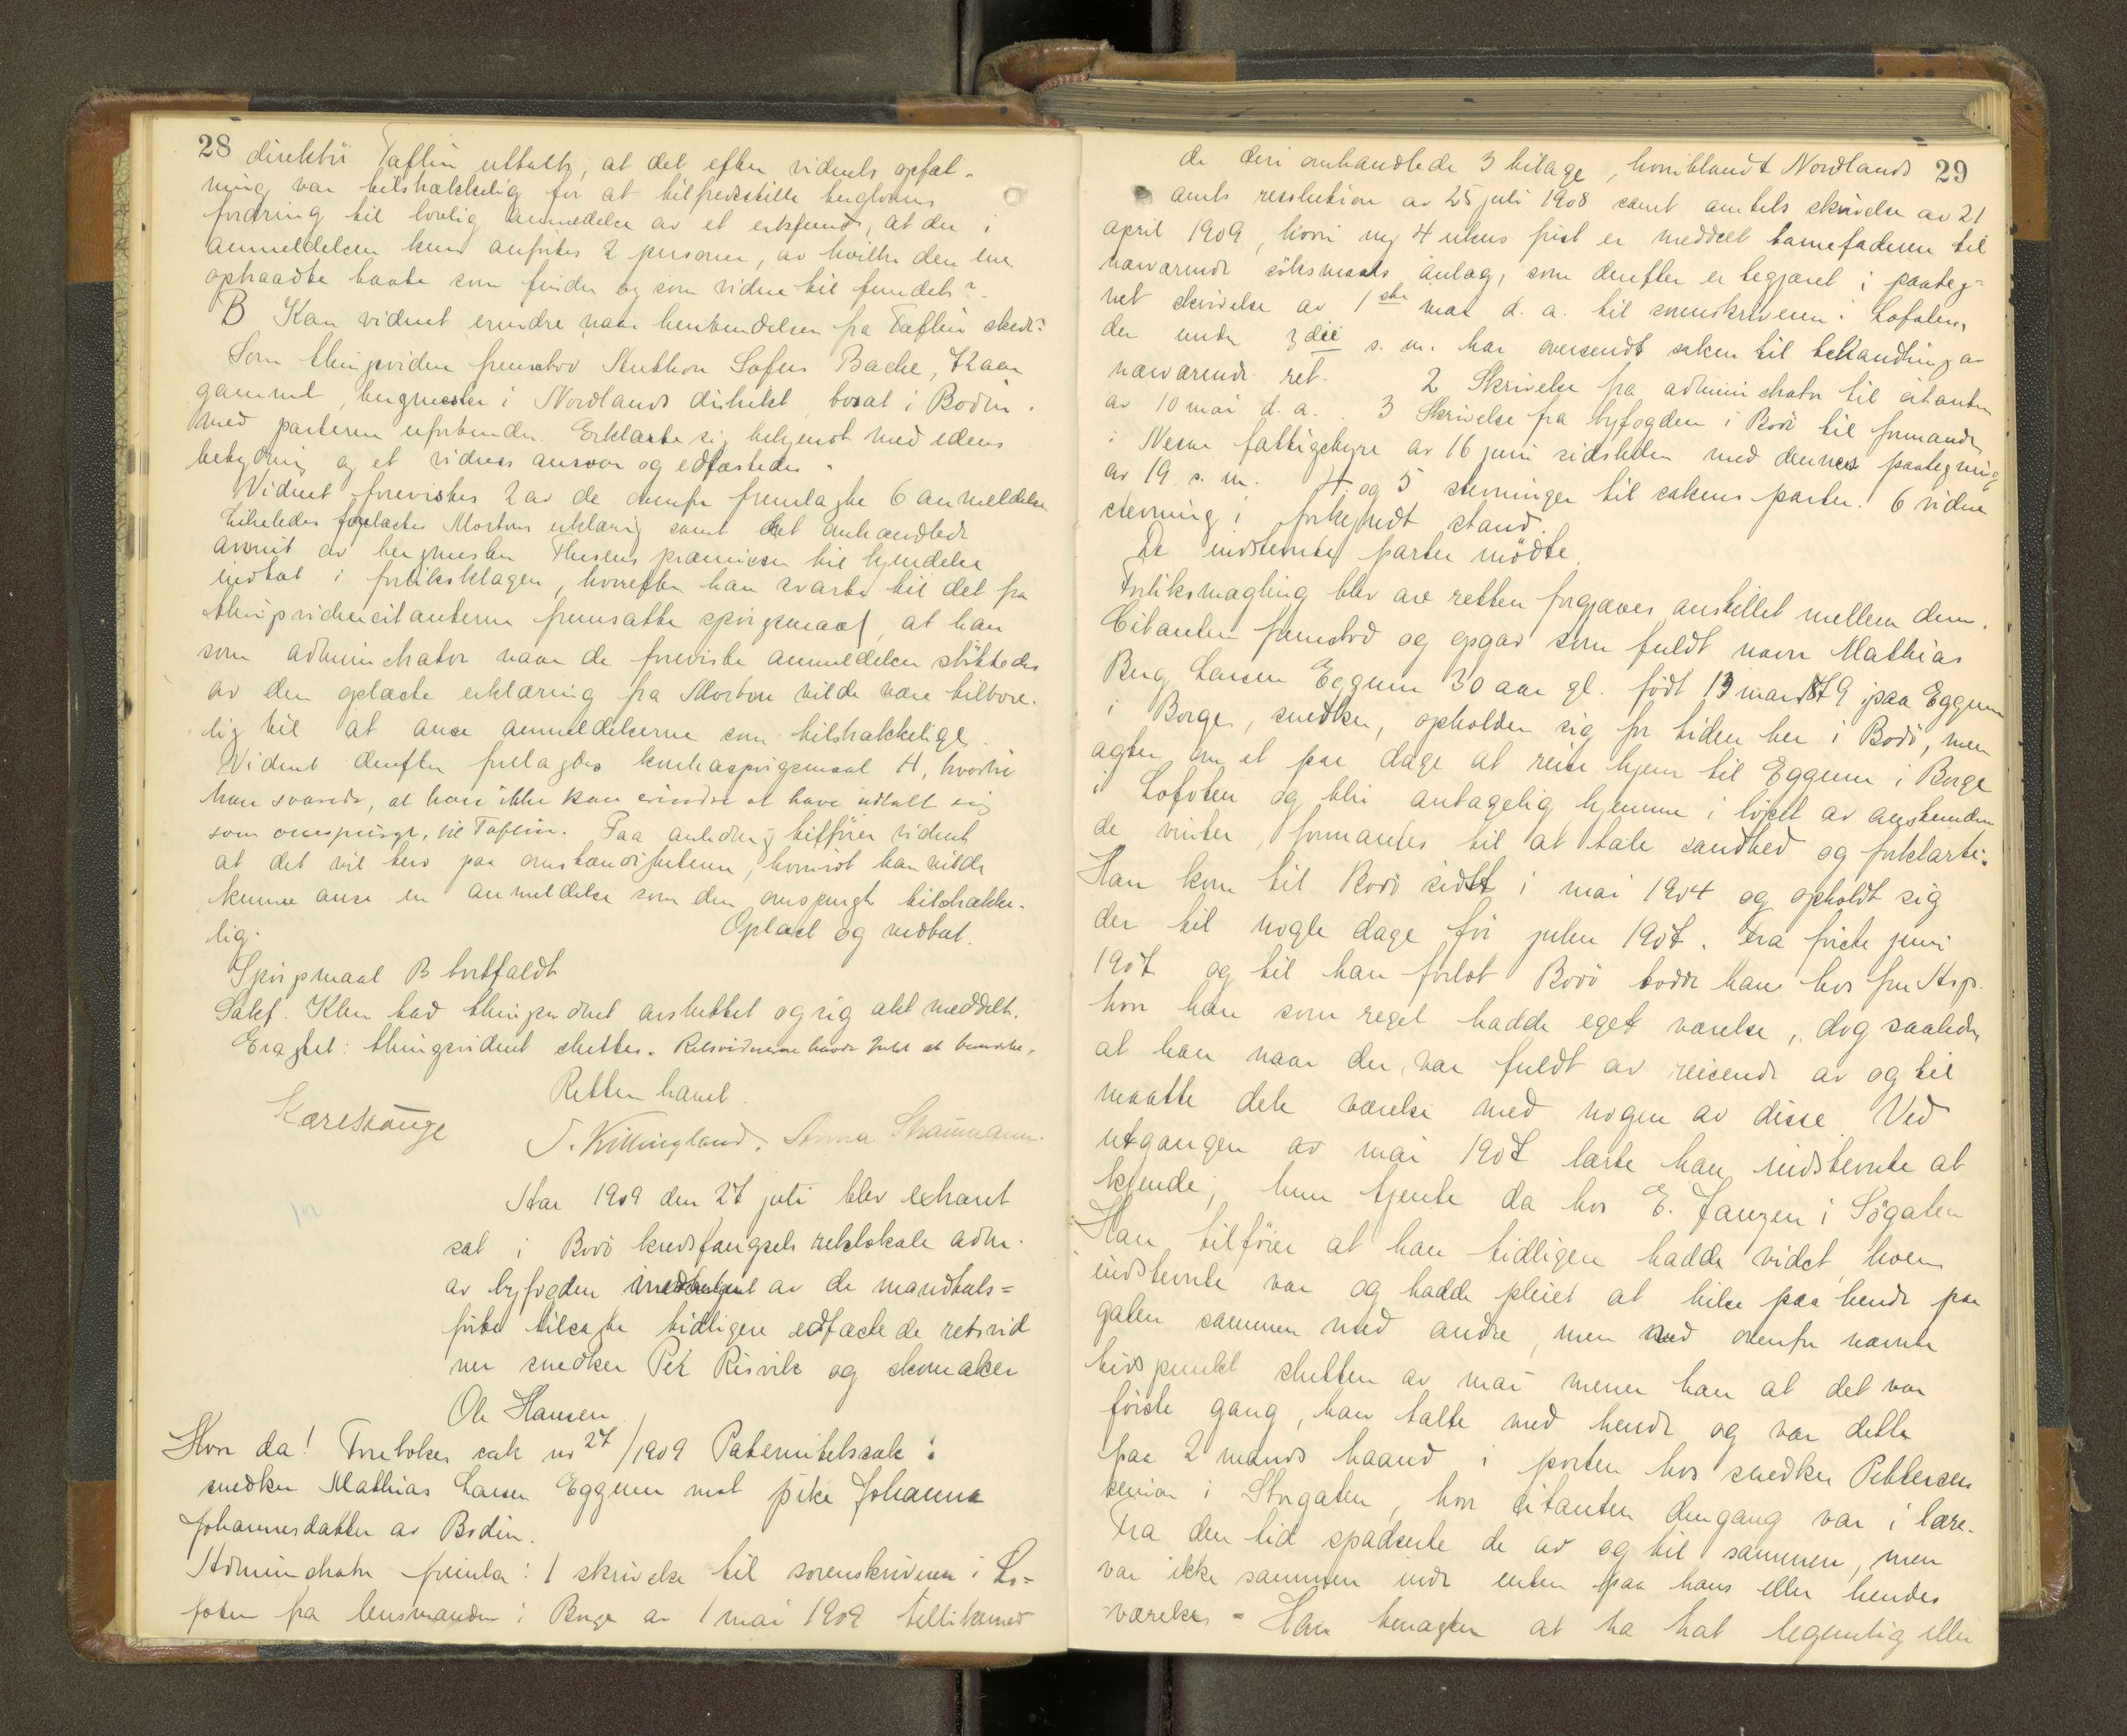 28 direktör Taflin uttalte, at det efter vidnets opfat-
ning var tilstrækkelig for at tilfredsstille berglovens
fordring til lovlig anmeldelse av et ertsfund, at der i
anmeldelsen kun anførtes 2 personer, av hvilke den ene
optraadte baade som finder og som vidne til fundet?
B Kan vidnet erindre naar henvendelsen fra Taflin skedte?
Som thingsvidne fremstod Anthon Sofus Bache, 72 aar
gammel, bergmester i Nordlands distrikt bosat i Bodin.
Med parterne uforbunden. Erklærte sig bekjendt med edens
betydning og et vidnes ansvar og edfæstedes.
Vidnet forevistes 2 av de ovenfor fremlagte 6 anmeldelser
likeledes forelæstes Mortens erklæring samt det omhandlede
avsnit av bergmester Thesens præmisser til kjendelse
indtat i forliksklagen, hvorefter han svarte til det fra
thingsvidnecitanterne fremsatte spörgsmaal, at han
som administrator naar de foreviste anmeldelser støttedes
av den oplæste erklæring fra Morten vilde være tilböie-
lig til at anse anmeldelserne som tilstrækkelige.
Vidnet derefter forelagdes kontraspörgsmaal A, hvortil
han svarede, at han ikke kan erindre at have udtalt sig
som omspurgt, til Taflin. Paa anledning tilföier vidnet
at det vil bero paa omstændigheterne, hvorvidt han vilde
kunne anse en anmeldelse som den omspurgte tilstrække-
lig. Oplæst og vedtat.
Spörgsmaal B bortfaldt
Sakf. Klem bad thingsvidnet avsluttet og sig akt meddelt.
Eragtet: thingsvidnet sluttes. Retsvidnerne havde intet at bemerke.
Retten hævet.
Karelstange T. Killingland. Anna Straumann.
Aar 1909 den 27 juli blev ekstraret
sat i Bodö kredsfængsels retslokale adm.
av byfogden av de mandtals-
förte tilsagte tidligere edfæstede retsvid
ner snedker Petr Risvik og skomaker
Ole Hansen
Hvor da! Foretokes sak nr 27/1909 Paternitetssak:
snedker Mathias Larsen Eggum mot pike Johanna
Johannesdatter av Bodin.
Administrator fremla: 1 skrivelse til sorenskriveren i Lo-
foten fra lensmanden i Borge av 1 mai 1909 tillikemed
29
de deri omhandlede 3 bilage, hvoriblandt Nordlands
amts resolution av 25 juli 1908 samt amtets skrivelse av 21
april 1909, hvori ny 4 ukers frist er meddelt barnefaderen til
nærværende söksmaals anlæg, som derefter er begjæret i paateg-
net skrivelse av 1ste mai d. a. til sorenskriveren i Lofoten,
der under 3die s. m. har oversendt saken til behandling av
nærværende ret. 2 Skrivelse fra administrator til citanten
av 10 mai d. a. 3 Skrivelse fra byfogden i Bodö til formanden
i Nesne fattigstyre av 16 juni sidstleden med dennes paategning
av 19. s. m. 4 og 5 stevninger til sakens parter. 6 vidne
stevning i forkyndt stand.
De indstevnte parter mödte
Forliksmægling blev av retten forgjæves anstillet mellem dem.
Citanten fremstod og opgav som fuldt navn Mathias
Berg Larsen Eggum 30 aar gl. födt 13 mars 79 paa Eggum
i Borge, snedker, opholder sig for tiden her i Bodö, men
agter om et par dage at reise hjem til Eggum i Borge
i Lofoten og bli antagelig hjemme i löpet av anstunden
de vinter, formantes til at tale sandhed og forklarte:
Han kom til Bodö sidst i mai 1904 og opholdt sig
der til nogle dage för julen 1907. Fra förste juni
1907 og til han forlot Bodö bodde han hos fru Asp.
hvor han som regel hadde eget værelse, dog saaledes
at han naar der var fuldt av reisende av og til
maatte dele værelse med nogen av disse. Ved
utgangen av mai 1907 lærte han indstevnte at
kjende; hun tjente da hos E. Janzen i Sögaten
Han tilföier at han tidligere hadde vidst, hvem
indstevnte var og hadde pleiet at hilse paa hende paa
gaten sammen med andre, men ved ovenfor nævnte
tidspunkt slutten av mai mener han at det var
förste gang, han talte med hende og var dette
paa 2 mands haand i porten hos snedker Pettersen
senior i Storgaten, hvor citanten dengang var i lære.
Fra den tid spadserte de av og til sammen, men
var ikke sammen inde enten paa hans eller hendes
værelse. Han benægter at ha hat legemlig eller